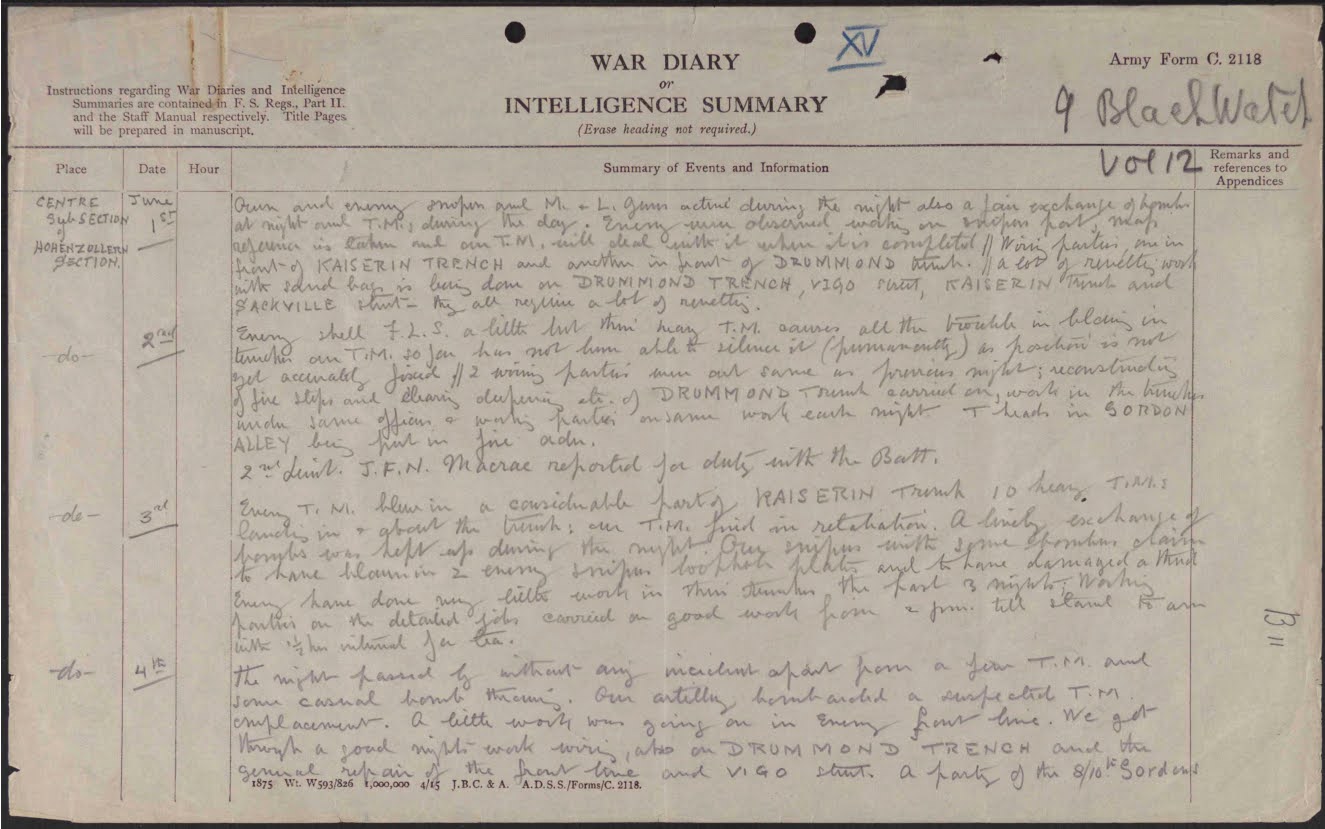 XV
WAR DIARY
or
INTELLIGENCE SUMMARY
(Erase heading not required.)
Army Form C. 2118
Instructions regarding War Diaries and Intelligence
Summaries are contained in F. S. Regs., Part II.
and the Staff Manual respectively. Title Pages
will be prepared in manuscript.
9 Black Watch
Vol 12
Place
Date
Hour
Summary of Events and Information
Remarks and
references to
Appendices
CENTRE
SubSECTION
of
HOHENZOLLERN
SECTION.
June
1st
Our and enemy snipers and M. & L. Guns active during the night also a fair exchange of bombs
at night and T.M.s during the day. Enemy were observed working on snipers post, map
reference is taken and our T.M. will deal with it when it is completed // Wiring parties, one in
front of KAISERIN TRENCH and another in front of DRUMMOND trench. // a lot of revetting work
with sand bags is being done on DRUMMOND TRENCH, VIGO street, KAISERIN Trench and
SACKVILLE street - they all require a lot of revetting.
-do-
2nd
Enemy shell F.L.S. a little but their heavy T.M. causes all the trouble in blowing in
trenches our T.M. so far has not been able to silence it (permanently) as position is not
yet accurately fixed // 2 wiring parties were out same as previous night; reconstructing
of fire steps and clearing deepening etc. of DRUMMOND Trench carried on, work in the trenches
under same officers & working parties on same work each night T heads in GORDON
ALLEY being put in fire order.
2nd Lieut. J.F.N. Macrae reported for duty with the Batt.
-do-
3rd
Enemy T.M. blew in a considerable part of KAISERIN Trench 10 heavy T.M.s
landing in & about the trench; our T.M. fired in retaliation. A lively exchange of
bombs was kept up during the night. Our snipers with some bombers claim
to have blown in 2 enemy snipers loophole plates and to have damaged a third
Enemy have done very little work in their trenches the past 3 nights; Working
parties on the detailed jobs carried on good work from 2 p.m. till stand to am
with 1½ hrs interval for tea.
-do-
4th
The night passed by without any incident apart from a few T.M. and
some casual bomb throwing. Our artillery bombarded a suspected T.M.
emplacement. A little work was going on in Enemy front line. We got
through a good nights work wiring, also on DRUMMOND TRENCH and the
general repair of the front line and VIGO street. A party of the 8/10th Gordons
1875 Wt. W593/826 1,000,000 4/15 J.B.C. & A. A.D.S.S./Forms/C. 2118.